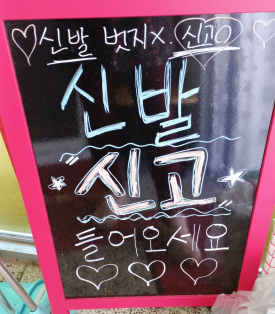 신발 벗지X. 신고O
신발
"신고"
들어오세요